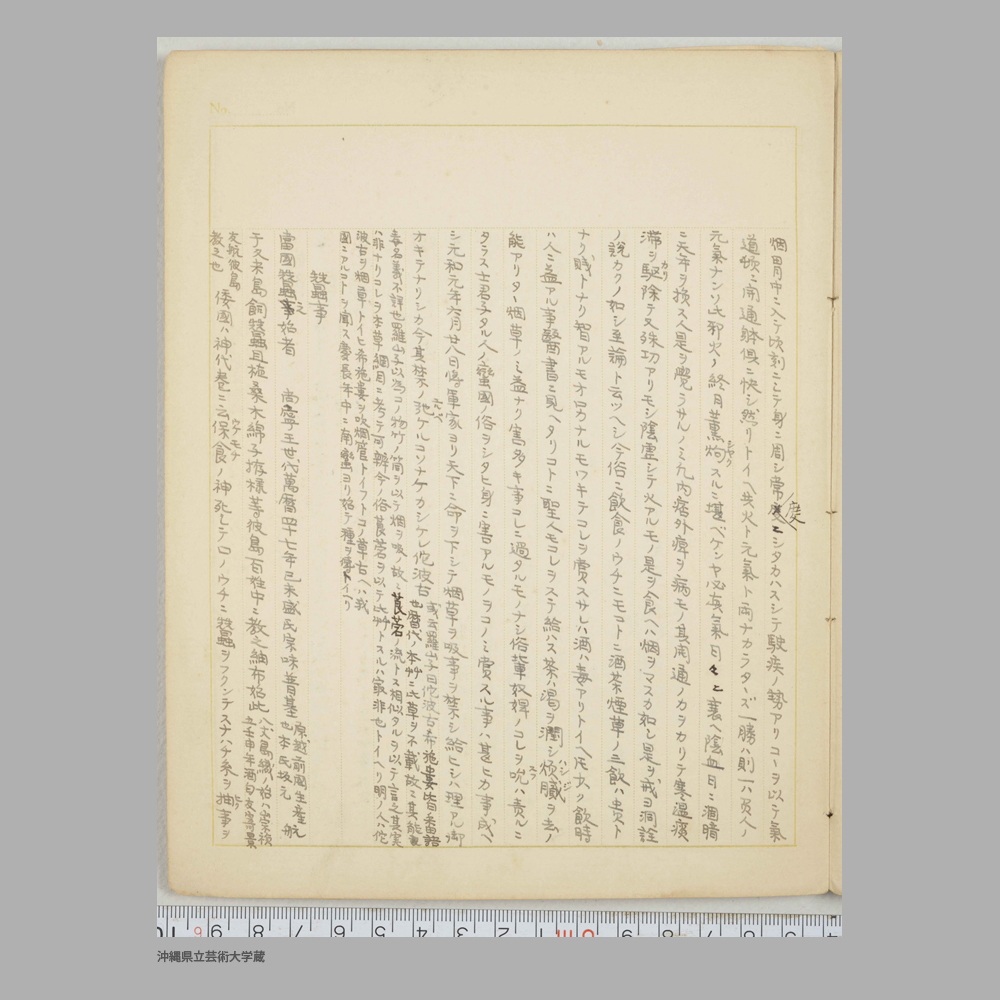 烟胃中ニ入テ頃刻ニシテ身ニ周シ常度ニシタカハスシテ駛疾ノ勢アリコヽヲ以テ氣
道頓ニ開通躰倶ニ快シ然リトイヘ共火ト元氣ト両ナカラタヽズ一勝ハ則一ハ負人ノ
元氣ナンソ此邪火ノ終月薫灼スルニ堪ベケンヤ必真氣日々ニ衰ヘ陰血日ニ涸暗
ニ天年ヲ損ス人是ヲ覺ラサルノミ凡内宿外瘴ヲ病モノ其開通ノ力ヲカリテ寒温痰
滞ヲ駆除テ又殊功アリモシ陰虚シテ火アルモノ是ヲ食ヘハ烟ヲマスカ如シ是ヲ戒ヨ洞詮
ノ説カクノ如シ至論ト云ツヘシ今俗ニ飲食ノウチニモコトニ酒茶煙草ノ三飲ハ貴ト
ナリ賎トナリ智アルモオロカナルモワキテコレヲ賞スサレハ酒ハ毒アリトイヘ氏少ク飲時
ハ人ニ益アル事醫書ニ見ヘタリコトニ聖人モコレヲステ給ハス茶ハ渇ヲ潤シ煩膩ヲ去ノ
能アリタヽ烟草ノミ益ナク害多キ事コレニ過タルモノナシ俗輩奴婢ノコレヲ吮ハ責ルニ
タラス士君子タル人ノ蠻國ノ俗ヲシタヒ身ニ害アルモノヲコノミ賞スル事ハ甚ヒカ事成ヘ
シ元和元年六月廿八日將軍家ヨリ天下ニ命ヲ下シテ烟草ヲ吸事ヲ禁シ給ヒシハ理アル御
オキテナリシカ今其禁ノ弛ケルコソナケカシケレ佗波古
或云羅山子曰佗波古希施婁皆番語
也暦代ノ本艸ニ此草ヲ不載故ニ其能毒
毒名義不詳也羅山子以為コノ物竹ノ筒ヲ以テ烟ヲ吸ノ故ニ莨菪ノ流トス相似タルヲ以テ言之其実
ハ非ナリコレヲ本草綱目ニ考テ可辨今ノ俗莨菪ヲ以テ此艸トスルハ家非也トイヘリ明ノ人ハ佗
波古ヲ烟草トイヒ希施婁ヲ吹烟管トイフトコノ草古ヘハ我
國ニアルコトヲ聞ス慶長年中ニ南蠻ヨリ始テ種ヲ傳トイヘリ
蠶事
當國蠶之事始者 尚寧王世代萬暦四十七年己未盛氏宗味普基
原越前國生産航
也本氏坂元
于久米島飼蠶且植桑木綿子拵様等彼島百姓中ニ教之紬布始此
八丈島織
友航彼島
教之也
倭國ハ神代巻ニ云保食ノ神死シテロノウチニ蠶ヲフクンテスナハチ糸ヲ抽事ヲ